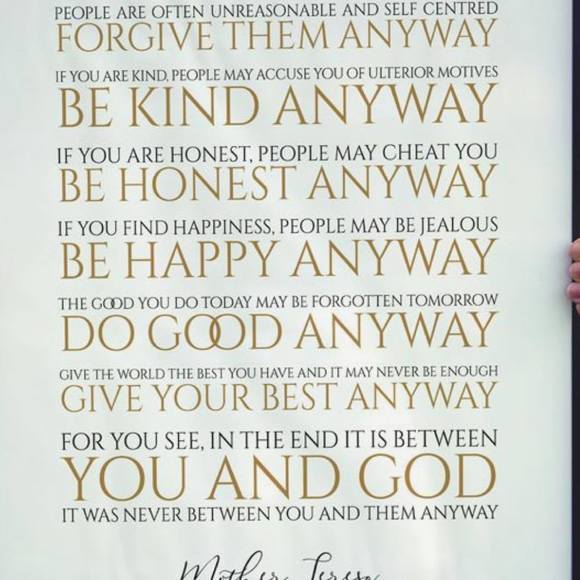 PEOPLE ARE OFTEN UNREASONABLE AND SELF CENTRED
FORGIVE THEM ANYWAY
IF YOU ARE KIND, PEOPLE MAY ACCUSE YOU OF ULTERIOR MOTIVES
BE KIND ANYWAY
IF YOU ARE HONEST, PEOPLE MAY CHEAT YOU
BE HONEST ANYWAY
IF YOU FIND HAPPINESS, PEOPLE MAY BE JEALOUS
BE HAPPY ANYWAY
THE GOOD YOU DO TODAY MAY BE FORGOTTEN TOMORROW
DO GOOD ANYWAY
GIVE THE WORLD THE BEST YOU HAVE AND IT MAY NEVER BE ENOUGH
GIVE YOUR BEST ANYWAY
FOR YOU SEE, IN THE END IT IS BETWEEN
YOU AND GOD
IT WAS NEVER BETWEEN YOU AND THEM ANYWAY
Mother Teresa